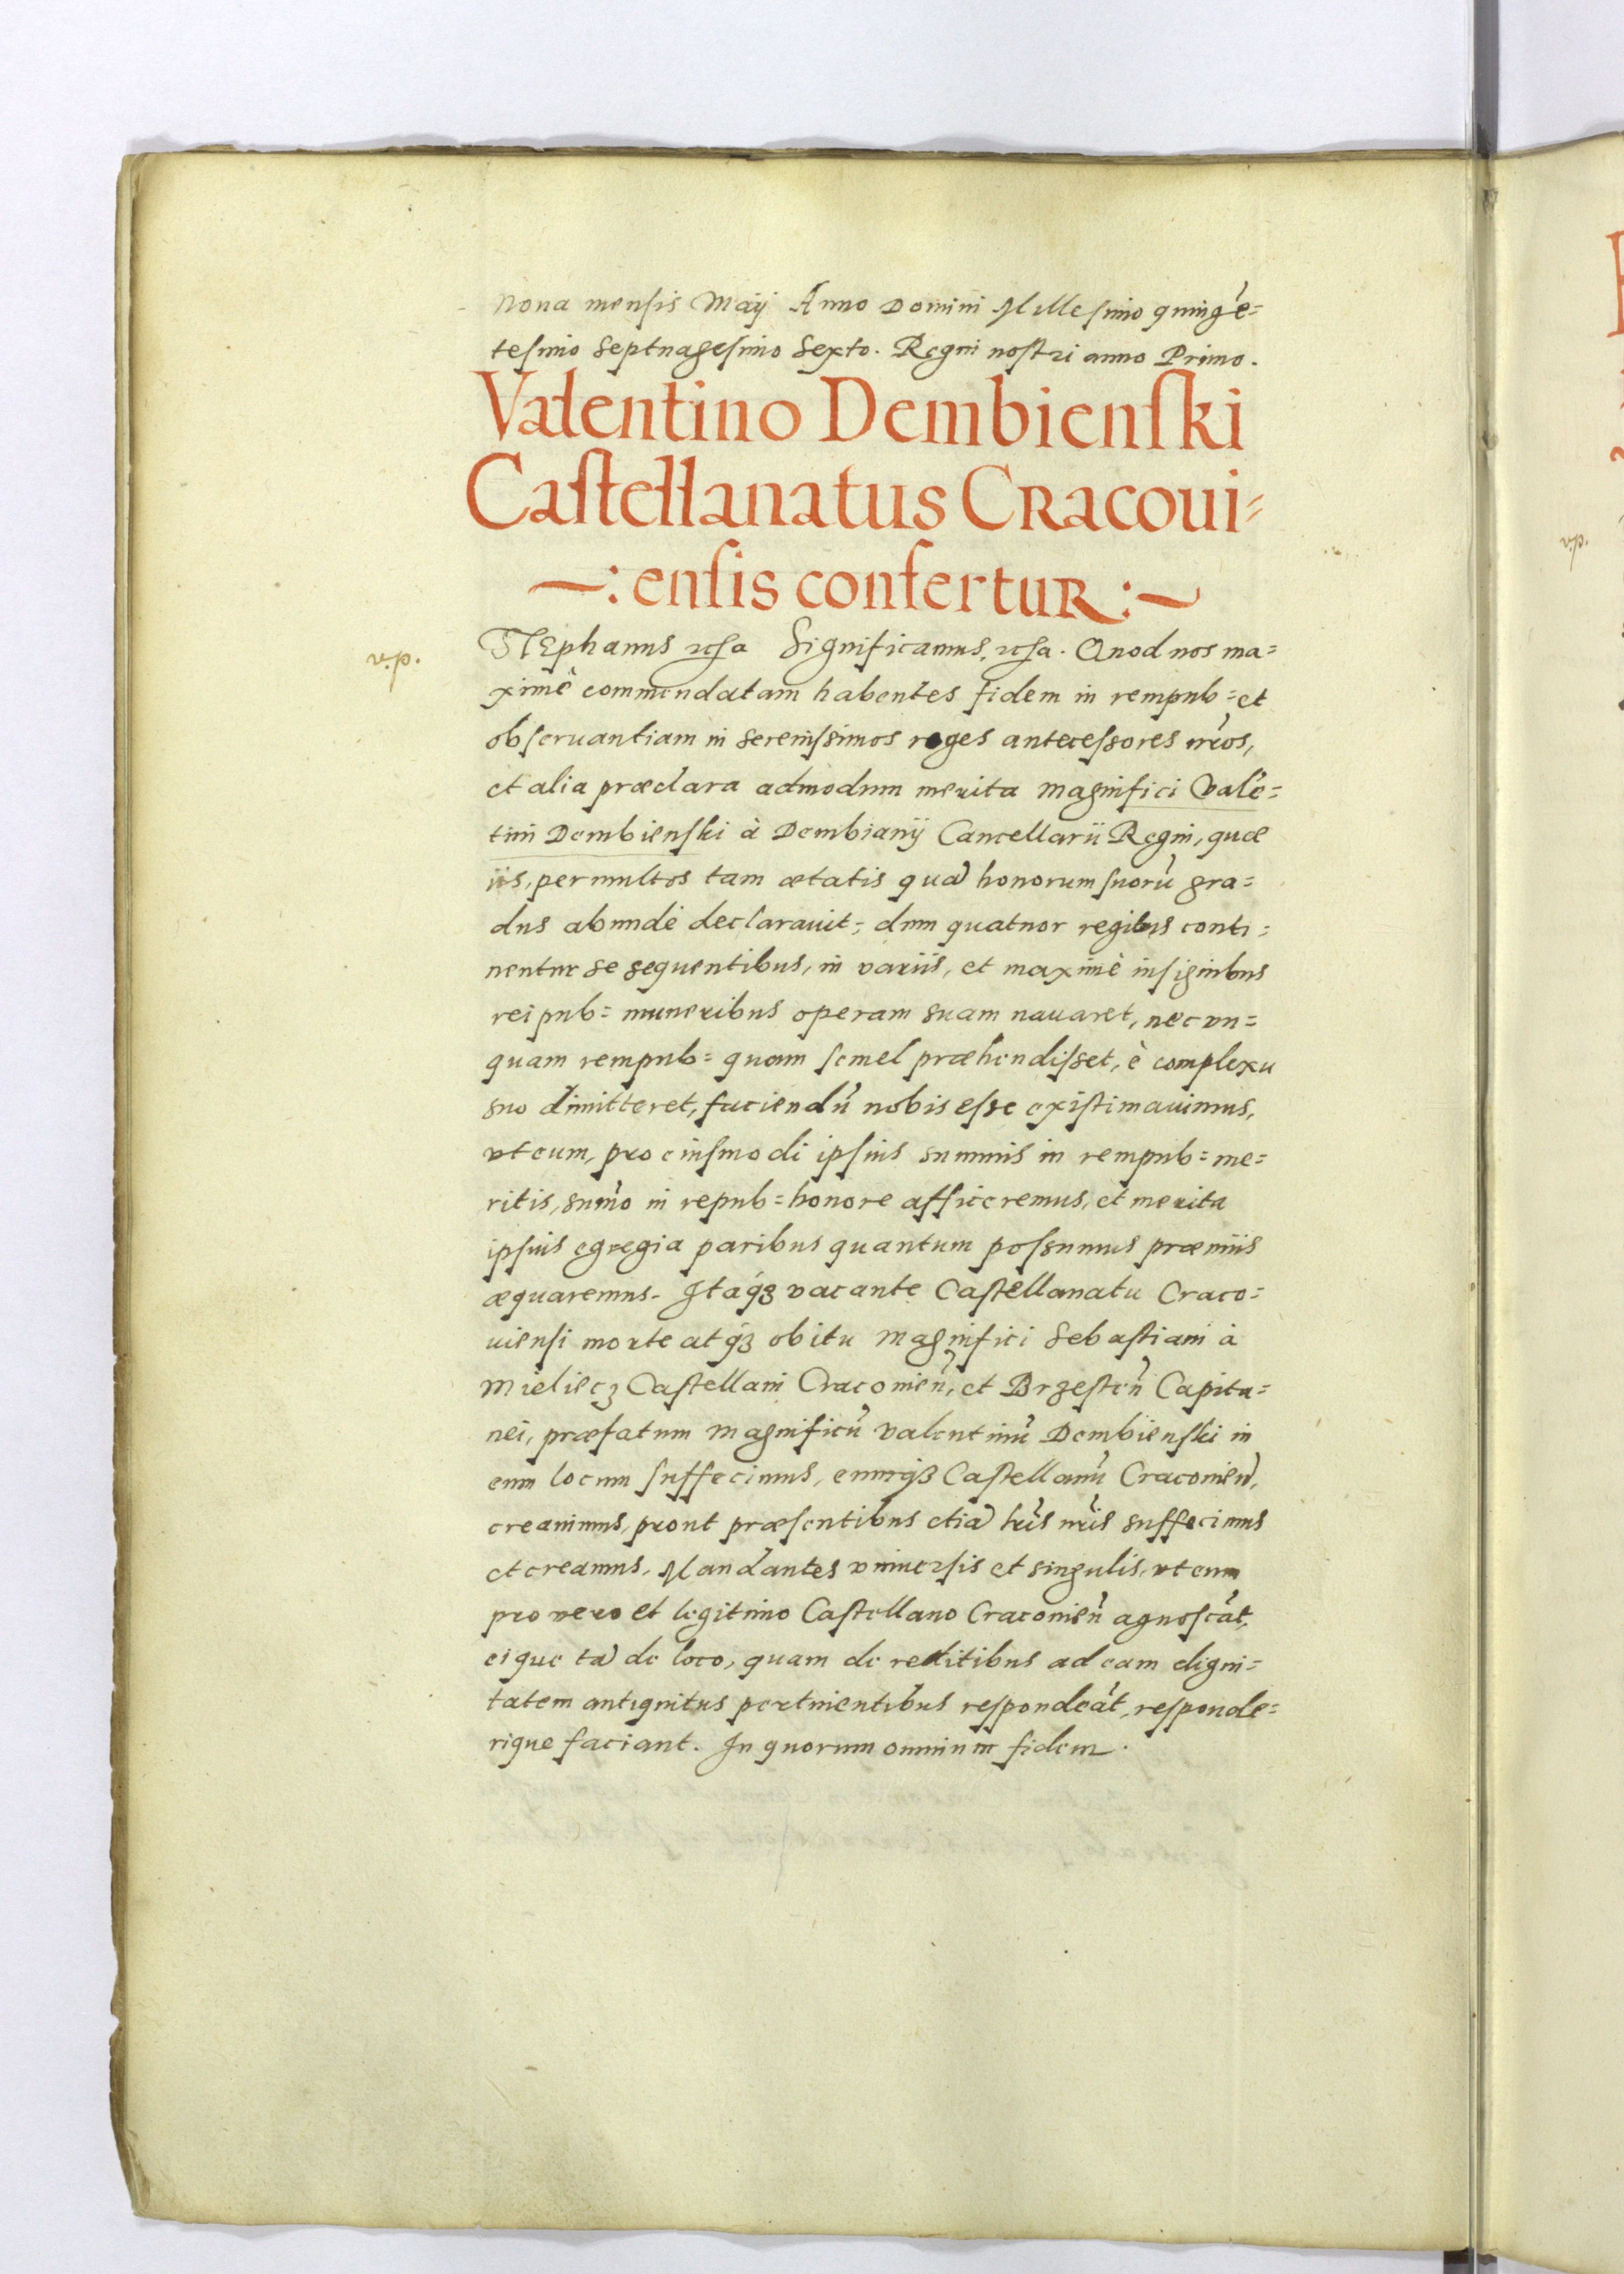 nona mensis Maij Anno Domini Millesimo quingẽ=
tesimo septuagesimo sexto. Regni nostri anno Primo.
Valentino Dembienski
Castellanatus Cracoui=
~: ensis confertur :~
v.p.
STEphanus etc̃a Significamus, etc̃a. Quod nos ma=
ximè commendatam habentes fidem in rempub= et
obseruantiam in serenissimos reges antecessores nr̃os,
et alia præclara admodum merita Magnifici Valẽ=
tini Dembienski à Dembianÿ Cancellarii Regni, quæ
iis, per multos tam ætatis quã honorum suorũ gra=
dus abundè declarauit, dum quatuor regibus conti=
nenter se sequentibus, in variis, et maximè insignibus
reipub= muneribus operam suam nauaret, nec vn=
quam rempub= quam semel præhendisset, è complexu
suo dimitteret, faciendũ nobis esse existimauimus,
vt eum, pro eiusmodi ipsius summis in rempub= me=
ritis, sum̃o in repub= honore afficeremus, et merita
ipsius egregia paribus quantum possumus præmiis
æquaremus. Itaq̃ȝ vacante Castellanatu Craco=
uiensi morte atq̃ȝ obitu Magnifici Sebastiani à
Mieliecz Castellani Cracouieñ, et Brzesteñ Capita=
nei, præfatum Magnificũ Valentinũ Dembienski in
eum locum suffecimus, eumq̃ȝ Castellanũ Cracouieñ,
creauimus, prout præsentibus etiã lr̃is nr̃is suffecimus
et creamus. Mandantes vniuersis et singulis, vt eum
pro vero et legitimo Castellano Cracouieñ agnoscãt,
eique tã de loco, quam de reditibus ad eam digni=
tatem antiquitus pertinentibus respondeãt, responde=
rique faciant. In quorum omnium fidem.
v.p.